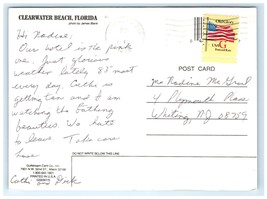 CLEARWATER BEACH, FLORIDA
photo by James Blank
Hi Nadine:
Our hotel is the pink
one. Just glorious
weather lately 85° most
every day. Cathi is
getting tan and I am
watching the bathing
beauties. We hate
to leave. Take care
Love
Cathi and Dick
Old Glory
USA G
For U.S. addresses only
POST CARD
Ms Nadine
4 Plymouth Place
Whiting, NJ 08759
DO NOT WRITE BELOW THIS LINE
Gulfstream Card Co. Inc.
PRINTED IN U.S.A.